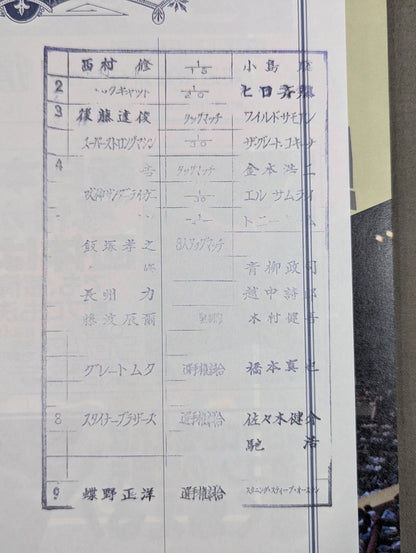 西村 修 1/15 小島
2 ックキャット 1/20
3 後藤達俊 タッグマッチ ワイルド・サモアン
スーパーストロングマシン 1/30 ザ・グレート・コキーナ
4 タッグマッチ 金本浩二
獣神サンダーライガー 1/30 エル サムライ
トニー ム
飯塚孝之 8人タッグマッチ
青柳政司
長州 力 越中詩郎
藤波辰爾 木村健吾
グレート ムタ 選手権試合 橋本真也
8 スタイナーブラザーズ 選手権試合 佐々木健介
馳 浩
9 蝶野正洋 選手権試合 スタニング・スティーブ・オースチン